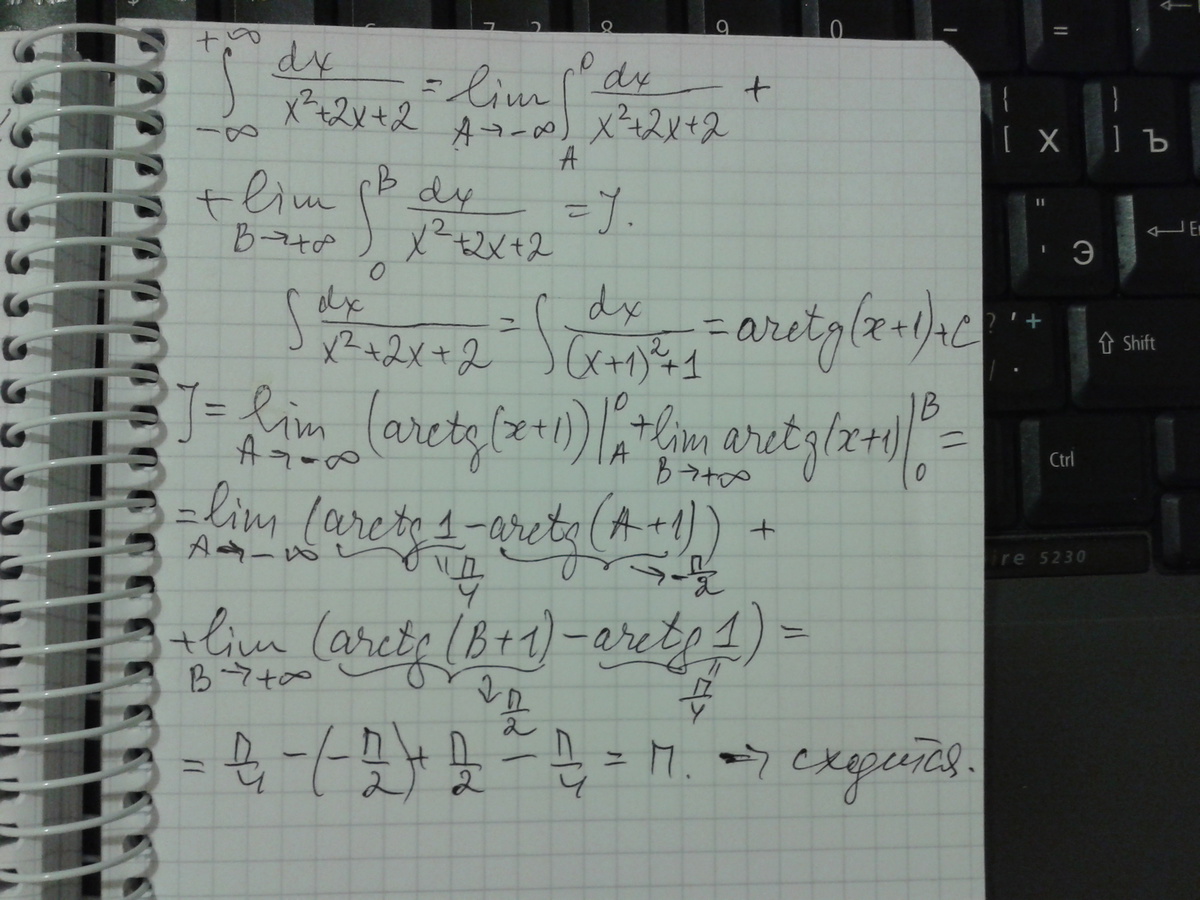 +∞
∫ dx/(x²+2x+2) = lim ∫ dx/(x²+2x+2) +
-∞ A→-∞ A 0
+ lim ∫ dx/(x²+2x+2) = J.
B→+∞ 0 B
∫ dx/(x²+2x+2) = ∫ dx/((x+1)²+1) = arctg(x+1)+C
J = lim (arctg(x+1))|_A^0 + lim arctg(x+1)|_0^B =
A→-∞ B→+∞
= lim (arctg 1 - arctg(A+1)) +
A→-∞ = π/4 → -π/2
+ lim (arctg(B+1) - arctg 1) =
B→+∞ ↓ π/2 = π/4
= π/4 - (-π/2) + π/2 - π/4 = π. → сходится.
7 2 8 9 0 - =
{ [ Х } ] Ъ
" ' Э
En
? ' + / .
⇧ Shift
Ctrl
ire 5230